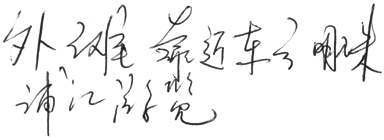 外滩 靠近东方明珠
浦江游览